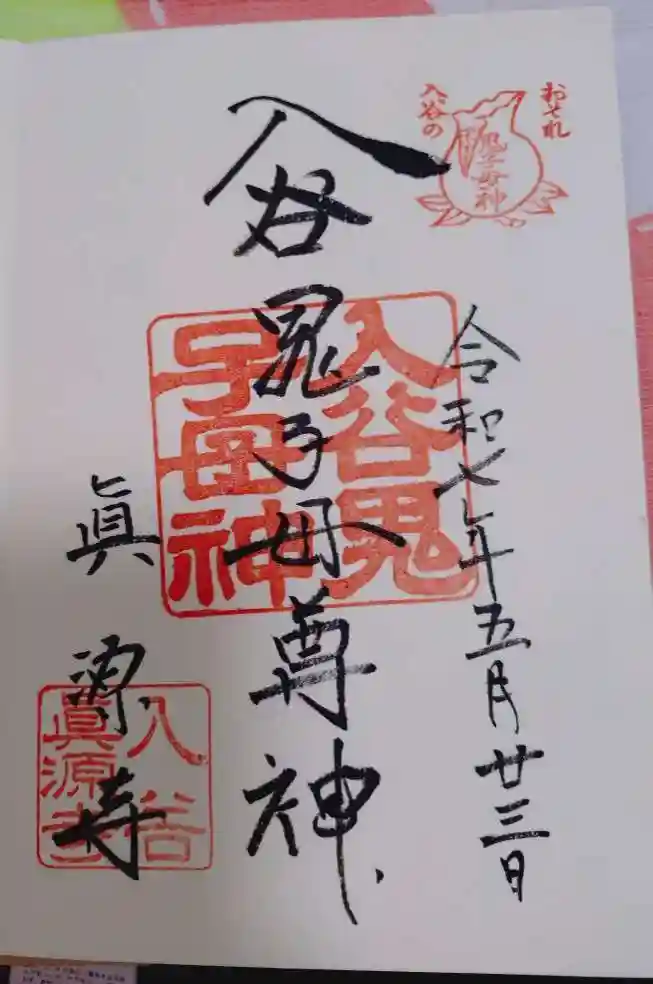 おそれ
入谷の
鬼子母神
令和七年五月廿三日
入谷鬼子母尊神
入谷鬼
子母神
眞源寺
入谷
眞源寺